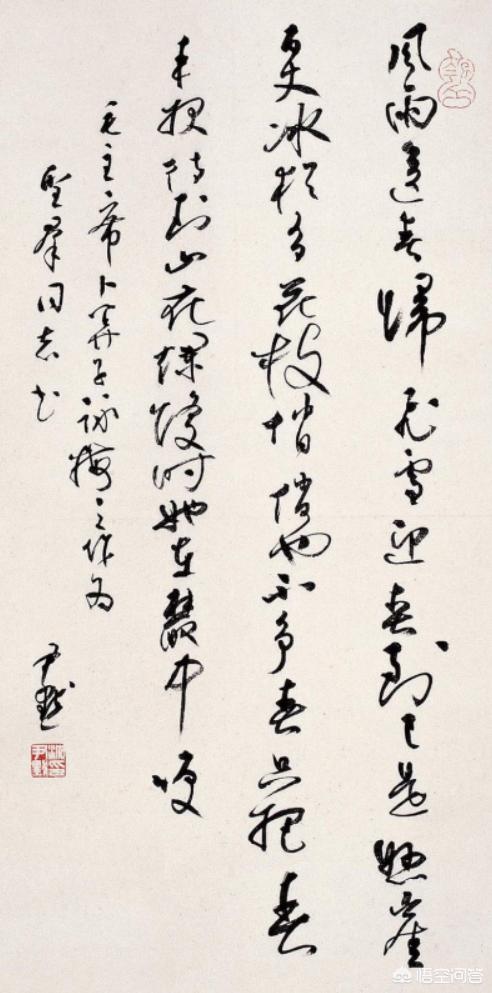 風雨送春歸飛雪迎春到已是懸崖
百丈冰猶有花枝俏俏也不争春只把春
来报待到山花爛熳时她在叢中咲
毛主席卜算子詠梅之作为
聖羣同志书
尹默
悟空问答